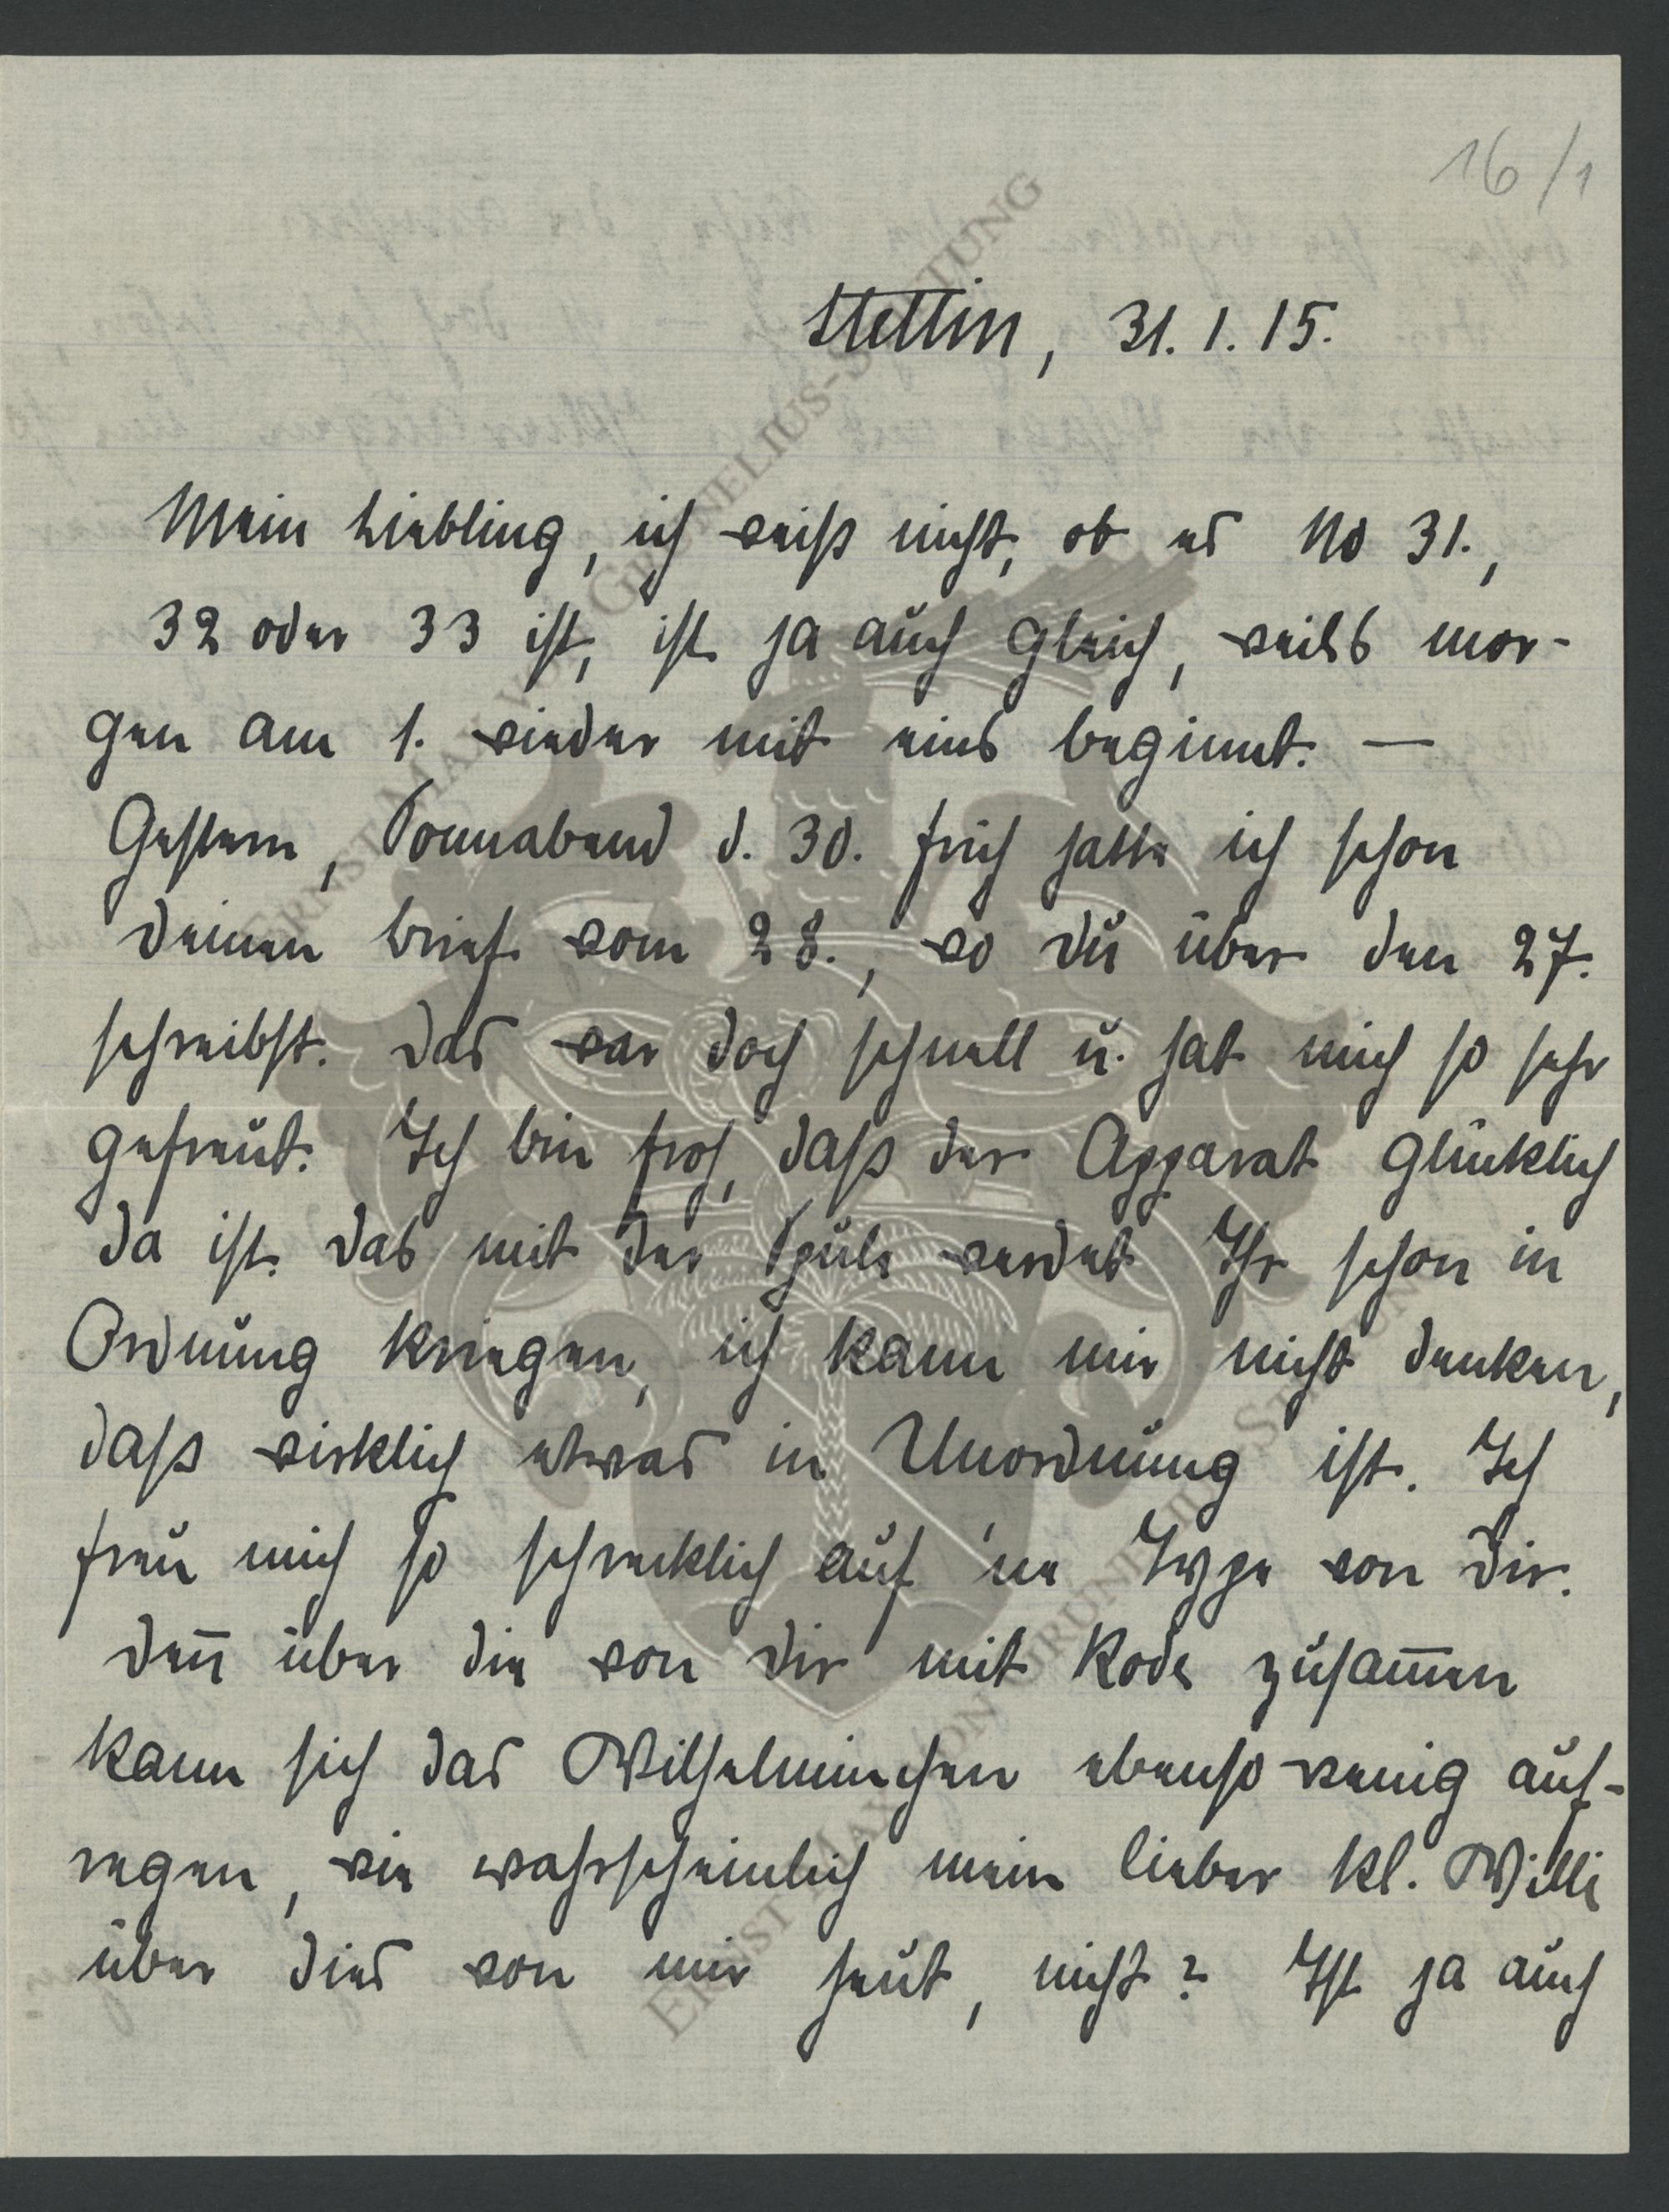 16/1
Stettin, 31.1.15.
Mein Liebling, ich weiß nicht, ob es No 31.,
32 oder 33 ist, ist ja auch gleich, weils mor-
gen am 1. wieder mit eins beginnt. —
Gestern, Sonnabend d. 30. früh hatte ich schon
Deinen Brief vom 28., wo Du über den 27.
schreibst. Das war doch schnell u. hat mich so sehr
gefreut. Ich bin froh, daß der Apparat glücklich
da ist. Das mit der Spule werdet Ihr schon in
Ordnung kriegen, ich kann mir nicht denken,
daß wirklich etwas in Unordnung ist. Ich
freu mich so schrecklich auf 'ne Type von Dir.
Den̄ über die von Dir mit Rode zusam̄en
kann sich das Wilhelminchen ebenso wenig auf-
regen, wie wahrscheinlich mein lieber kl. Willi
über dies von mir heut, nicht? Ist ja auch
ERNST MAX VON GRUNELIUS-STIFTUNG
ERNST MAX VON GRUNELIUS-STIFTUNG